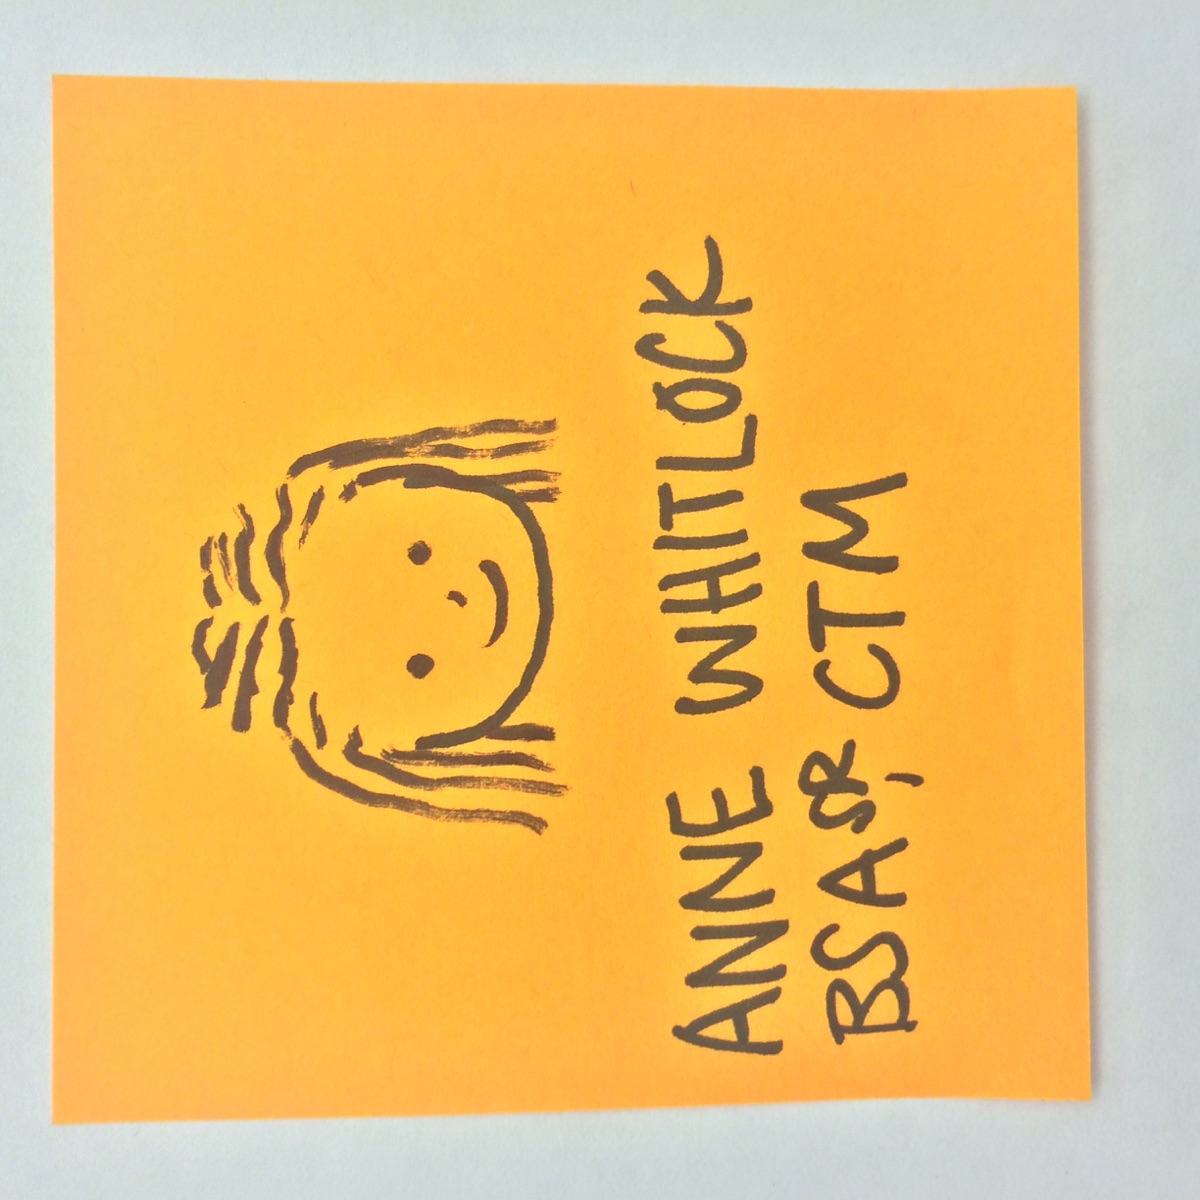 ANNE WHITLOCK
BSASR, CTM